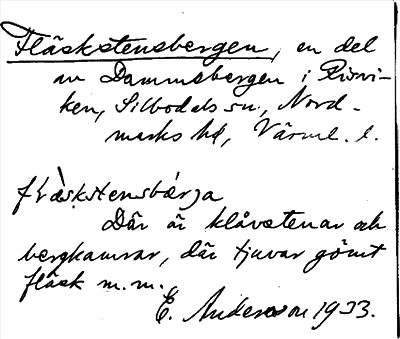 Fläskstensbergen, en del
av Dammsbergen i Rirvi-
ken, Silbodals sn, Nord-
marks hd, Värml. l.
flàskstensbärja
Där är klåvstenar och
bergkamrar, där tjuvar gömt
fläsk m.m.
E. Anderson 1933.